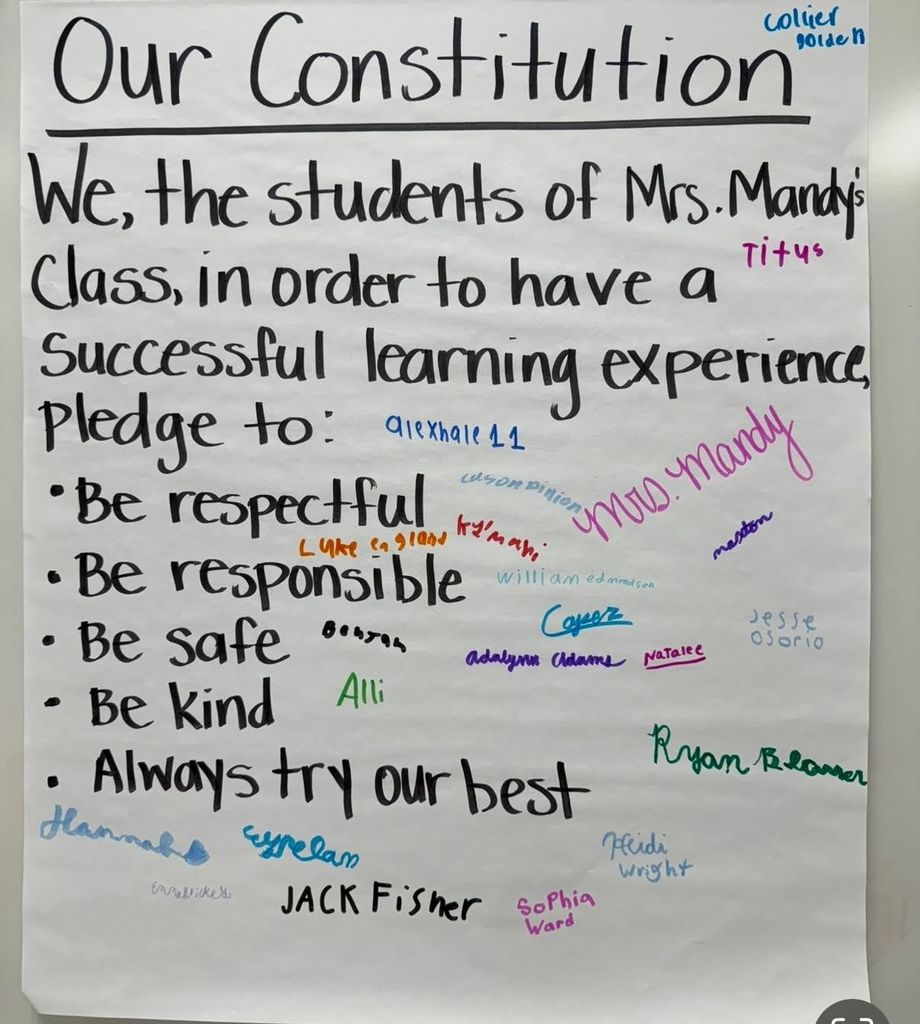 collier
golden
Our Constitution
We, the students of Mrs. Mandy's
Class, in order to have a
Titus
Successful learning experience,
Pledge to:
alexhale11
Mrs. Mandy
• Be respectful
Luke england
Ky'mani
• Be responsible
william edmondson
• Be safe
Jesse
Osorio
adalynn adams
Natalee
• Be kind
Alli
Ryan
• Always try our best
Hannah
Heidi
Wright
JACK Fisher
Sophia
Ward